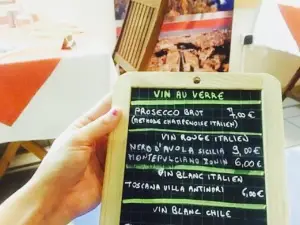 VIN AU VERRE
PROSECCO BRUT 7,00€
(METHODE CHAMPENOISE ITALIEN)
VIN ROUGE ITALIEN
NERO D'AVOLA SICILIA 9,00€
MONTEPULCIANO ZONIN 6,00€
VIN BLANC ITALIEN
TOSCANA VILLA ANTINORI 6,00€
VIN BLANC CHILE